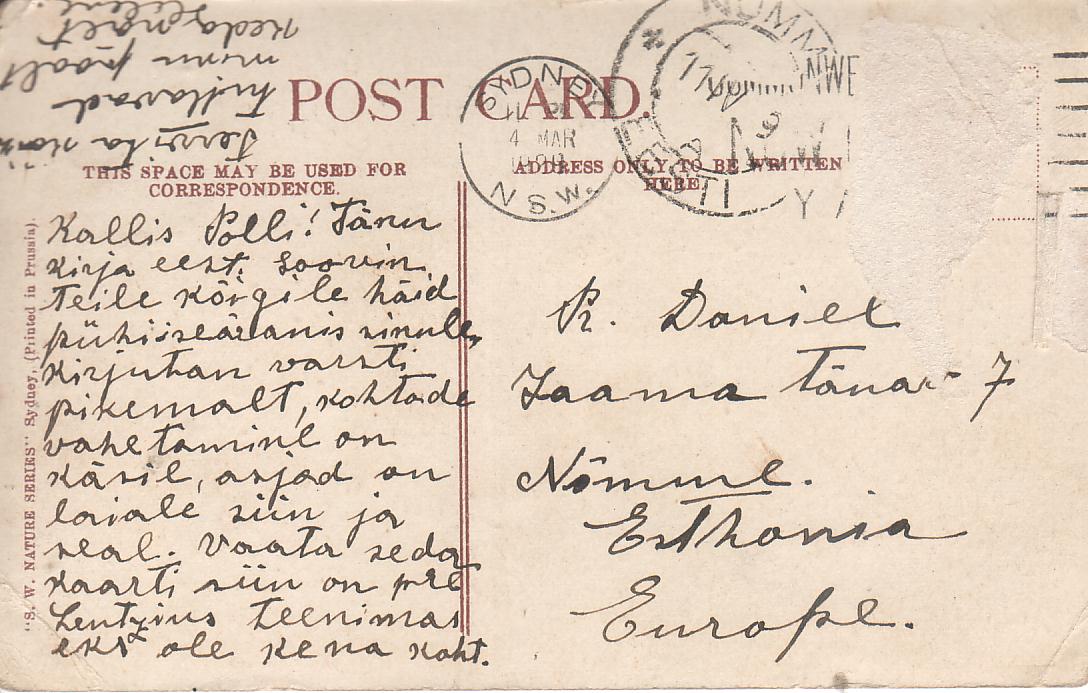 POST CARD
THIS SPACE MAY BE USED FOR
CORRESPONDENCE.
ADDRESS ONLY TO BE WRITTEN
HERE
"S. W. NATURE SERIES" Sydney, (Printed in Prussia).
SYDNEY
4 MAR
N.S.W.
NÕMM
EESTI
Kallis Polli! Tänu
kirja eest. Soovin
Teile kõigile häid
pühi iseäranis sinule,
kirjutan varsti
pikemalt, kohtade
vahetamine on
käsil, asjad on
laiale siin ja
seal. Vaata seda
kaarti siin on pr E
Lentzius teenimas
eks ole kena koht.
Tervita
minu poolt
R. Daniel
Jaama tänav 7
Nõmme.
Esthonia
Europe.